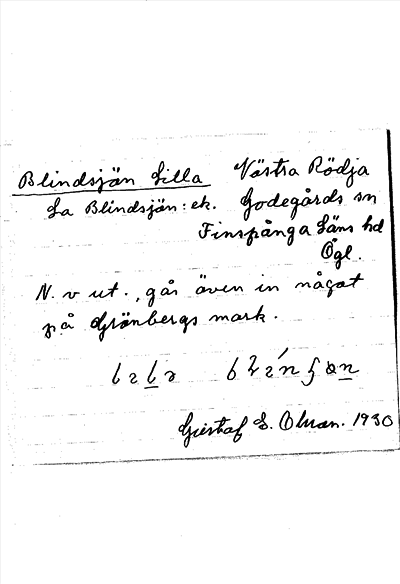 Blindsjön Lilla Västra Rödja
La Blindsjön: ek. Godegårds sn
Finspånga Läns hd
Ögl.
N. v ut., går även in något
på Grönbergs mark.
Gustaf E. Olsson. 1930